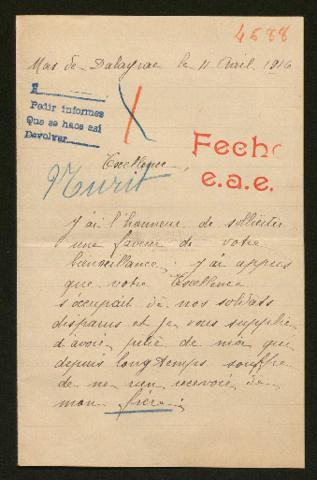 4588
Mas de Dalayrac le 11 Avril 1916
Pedir informes
Que se hace asi
Devolver
Fecho
e.a.e.
Excellence,
Nurit
J'ai l'honneur de solliciter
une faveur de votre
bienveillance. J'ai appris
que votre Excellence
s'occupait de nos soldats
disparus et je vous supplie
d'avoir pitié de moi qui
depuis longtemps souffre
de ne rien recevoir de
mon frère.